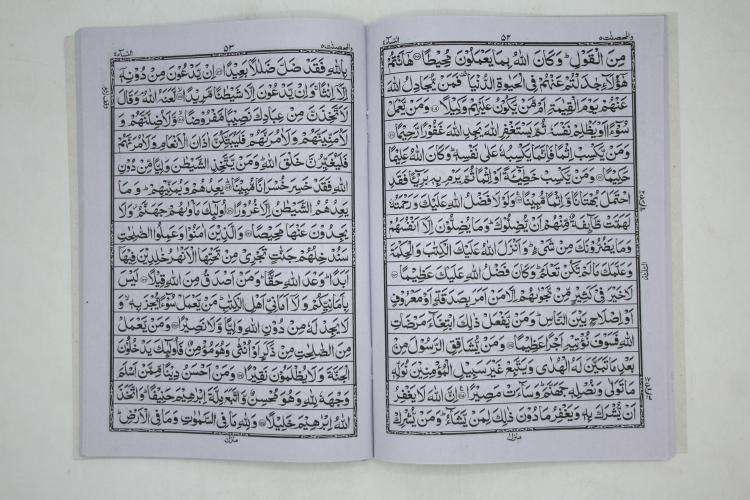 والمحصنت ٥
٥٢
النسآء ٤
مِنَ الْقَوْلِ ؕ وَكَانَ اللّٰهُ بِمَا يَعْمَلُوْنَ مُحِيْطًا ۝ هٰۤاَنْتُمْ
هٰۤؤُلَآءِ جٰدَلْتُمْ عَنْهُمْ فِي الْحَيٰوةِ الدُّنْيَا ۫ فَمَنْ يُّجَادِلُ اللّٰهَ
عَنْهُمْ يَوْمَ الْقِيٰمَةِ اَمْ مَّنْ يَّكُوْنُ عَلَيْهِمْ وَكِيْلًا ۝ وَمَنْ يَّعْمَلْ
سُوْٓءًا اَوْ يَظْلِمْ نَفْسَهٗ ثُمَّ يَسْتَغْفِرِ اللّٰهَ يَجِدِ اللّٰهَ غَفُوْرًا رَّحِيْمًا ۝
وَمَنْ يَّكْسِبْ اِثْمًا فَاِنَّمَا يَكْسِبُهٗ عَلٰى نَفْسِهٖ ؕ وَكَانَ اللّٰهُ عَلِيْمًا
حَكِيْمًا ۝ وَمَنْ يَّكْسِبْ خَطِيْٓئَةً اَوْ اِثْمًا ثُمَّ يَرْمِ بِهٖ بَرِيْٓئًا فَقَدِ
احْتَمَلَ بُهْتَانًا وَّاِثْمًا مُّبِيْنًا ۝ وَلَوْلَا فَضْلُ اللّٰهِ عَلَيْكَ وَرَحْمَتُهٗ
لَهَمَّتْ طَّآئِفَةٌ مِّنْهُمْ اَنْ يُّضِلُّوْكَ ؕ وَمَا يُضِلُّوْنَ اِلَّاۤ اَنْفُسَهُمْ
وَمَا يَضُرُّوْنَكَ مِنْ شَيْءٍ ؕ وَاَنْزَلَ اللّٰهُ عَلَيْكَ الْكِتٰبَ وَالْحِكْمَةَ
وَعَلَّمَكَ مَا لَمْ تَكُنْ تَعْلَمُ ؕ وَكَانَ فَضْلُ اللّٰهِ عَلَيْكَ عَظِيْمًا ۝
لَا خَيْرَ فِيْ كَثِيْرٍ مِّنْ نَّجْوٰىهُمْ اِلَّا مَنْ اَمَرَ بِصَدَقَةٍ اَوْ مَعْرُوْفٍ
اَوْ اِصْلَاحٍۭ بَيْنَ النَّاسِ ؕ وَمَنْ يَّفْعَلْ ذٰلِكَ ابْتِغَآءَ مَرْضَاتِ
اللّٰهِ فَسَوْفَ نُؤْتِيْهِ اَجْرًا عَظِيْمًا ۝ وَمَنْ يُّشَاقِقِ الرَّسُوْلَ مِنْۢ
بَعْدِ مَا تَبَيَّنَ لَهُ الْهُدٰى وَيَتَّبِعْ غَيْرَ سَبِيْلِ الْمُؤْمِنِيْنَ نُوَلِّهٖ
مَا تَوَلّٰى وَنُصْلِهٖ جَهَنَّمَ ؕ وَسَآءَتْ مَصِيْرًا ۝ اِنَّ اللّٰهَ لَا يَغْفِرُ
اَنْ يُّشْرَكَ بِهٖ وَيَغْفِرُ مَا دُوْنَ ذٰلِكَ لِمَنْ يَّشَآءُ ؕ وَمَنْ يُّشْرِكْ
منزل
والمحصنت ٥
٥٣
النسآء ٤
بِاللّٰهِ فَقَدْ ضَلَّ ضَلٰلًۢا بَعِيْدًا ۝ اِنْ يَّدْعُوْنَ مِنْ دُوْنِهٖۤ
اِلَّاۤ اِنٰثًا ۚ وَاِنْ يَّدْعُوْنَ اِلَّا شَيْطٰنًا مَّرِيْدًا ۝ لَّعَنَهُ اللّٰهُ ۘ وَقَالَ
لَاَتَّخِذَنَّ مِنْ عِبَادِكَ نَصِيْبًا مَّفْرُوْضًا ۝ وَّلَاُضِلَّنَّهُمْ وَ
لَاُمَنِّيَنَّهُمْ وَلَاٰمُرَنَّهُمْ فَلَيُبَتِّكُنَّ اٰذَانَ الْاَنْعَامِ وَلَاٰمُرَنَّهُمْ
فَلَيُغَيِّرُنَّ خَلْقَ اللّٰهِ ؕ وَمَنْ يَّتَّخِذِ الشَّيْطٰنَ وَلِيًّا مِّنْ دُوْنِ
اللّٰهِ فَقَدْ خَسِرَ خُسْرَانًا مُّبِيْنًا ۝ يَعِدُهُمْ وَيُمَنِّيْهِمْ ؕ وَمَا
يَعِدُهُمُ الشَّيْطٰنُ اِلَّا غُرُوْرًا ۝ اُولٰٓئِكَ مَاْوٰىهُمْ جَهَنَّمُ ؗ وَلَا
يَجِدُوْنَ عَنْهَا مَحِيْصًا ۝ وَالَّذِيْنَ اٰمَنُوْا وَعَمِلُوا الصّٰلِحٰتِ
سَنُدْخِلُهُمْ جَنّٰتٍ تَجْرِيْ مِنْ تَحْتِهَا الْاَنْهٰرُ خٰلِدِيْنَ فِيْهَاۤ
اَبَدًا ؕ وَعْدَ اللّٰهِ حَقًّا ؕ وَمَنْ اَصْدَقُ مِنَ اللّٰهِ قِيْلًا ۝ لَيْسَ
بِاَمَانِيِّكُمْ وَلَاۤ اَمَانِيِّ اَهْلِ الْكِتٰبِ ؕ مَنْ يَّعْمَلْ سُوْٓءًا يُّجْزَ بِهٖ ۙ وَ
لَا يَجِدْ لَهٗ مِنْ دُوْنِ اللّٰهِ وَلِيًّا وَّلَا نَصِيْرًا ۝ وَمَنْ يَّعْمَلْ
مِنَ الصّٰلِحٰتِ مِنْ ذَكَرٍ اَوْ اُنْثٰى وَهُوَ مُؤْمِنٌ فَاُولٰٓئِكَ يَدْخُلُوْنَ
الْجَنَّةَ وَلَا يُظْلَمُوْنَ نَقِيْرًا ۝ وَمَنْ اَحْسَنُ دِيْنًا مِّمَّنْ اَسْلَمَ
وَجْهَهٗ لِلّٰهِ وَهُوَ مُحْسِنٌ وَّاتَّبَعَ مِلَّةَ اِبْرٰهِيْمَ حَنِيْفًا ؕ وَاتَّخَذَ
اللّٰهُ اِبْرٰهِيْمَ خَلِيْلًا ۝ وَلِلّٰهِ مَا فِي السَّمٰوٰتِ وَمَا فِي الْاَرْضِ ؕ
منزل